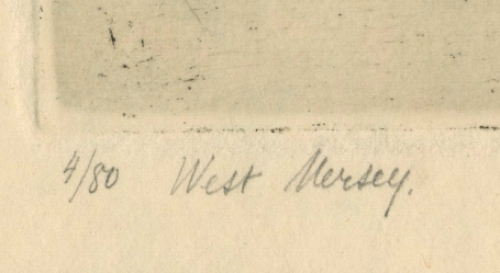 4/80 West Mersey.